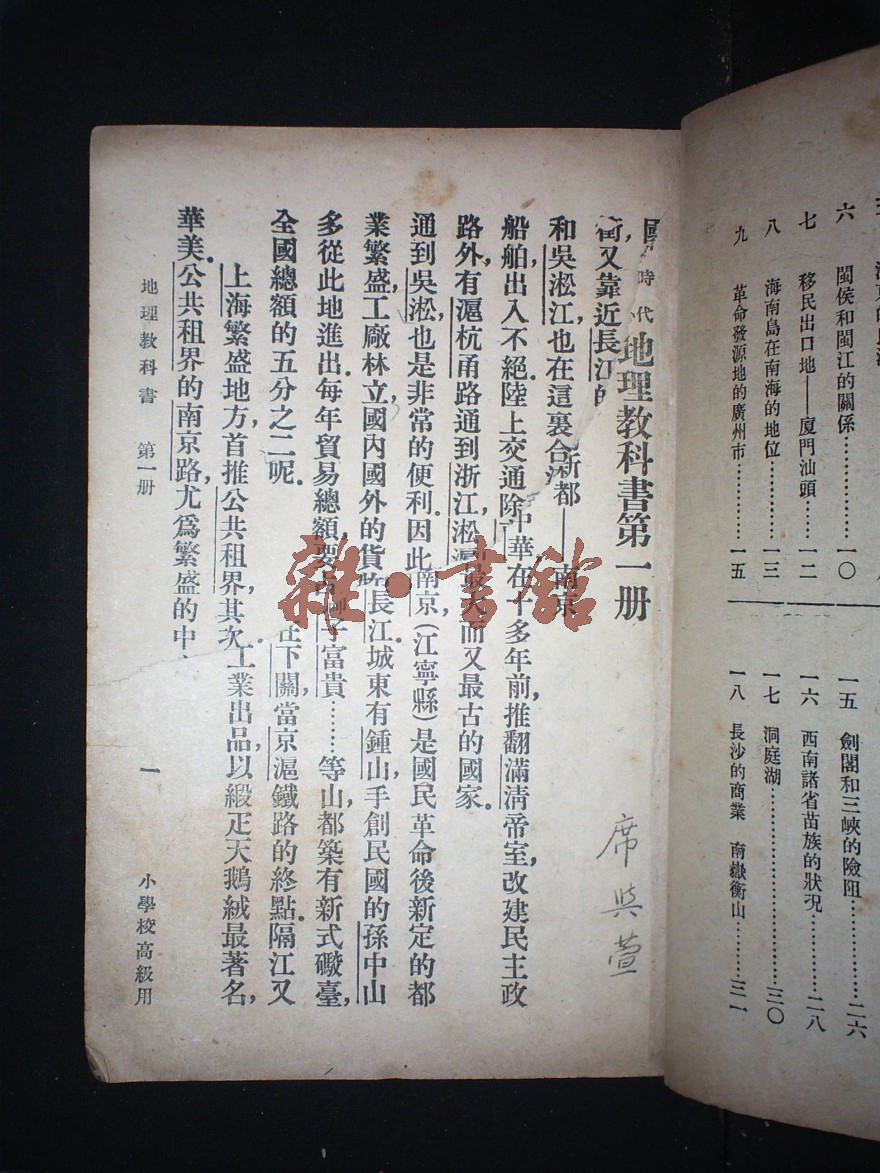 地理教科書第一册
時代
新都——南京
中華在十多年前，推翻滿清帝室，改建民主政
最大而又最古的國家。
南京（江寧縣）是國民革命後新定的都
長江。城東有鍾山，手創民國的孫中山
獅子富貴……等山，都築有新式礮臺，
在下關，當京滬鐵路的終點。隔江又
工業出品，以緞疋天鵝絨最著名，
街，又靠近長江的
和吳淞江，也在這裏合
船舶，出入不絕。陸上交通，除
路外，有滬杭甬路通到浙江，淞滬
通到吳淞，也是非常的便利。因此
業繁盛，工廠林立，國內國外的貨物
多從此地進出。每年貿易總額，要占
全國總額的五分之二呢。
上海繁盛地方，首推公共租界，其次
華美。公共租界的南京路，尤爲繁盛的中
地理教科書　第一册　一　小學校高級用
席與萱
六　閩侯和閩江的關係…………一〇
七　移民出口地——廈門汕頭……一二
八　海南島在南海的地位…………一三
九　革命發源地的廣州市…………一五
一五　劍閣和三峽的險阻…………二六
一六　西南諸省苗族的狀況………二八
一七　洞庭湖…………三〇
一八　長沙的商業　南嶽衡山………三一
雜·書館